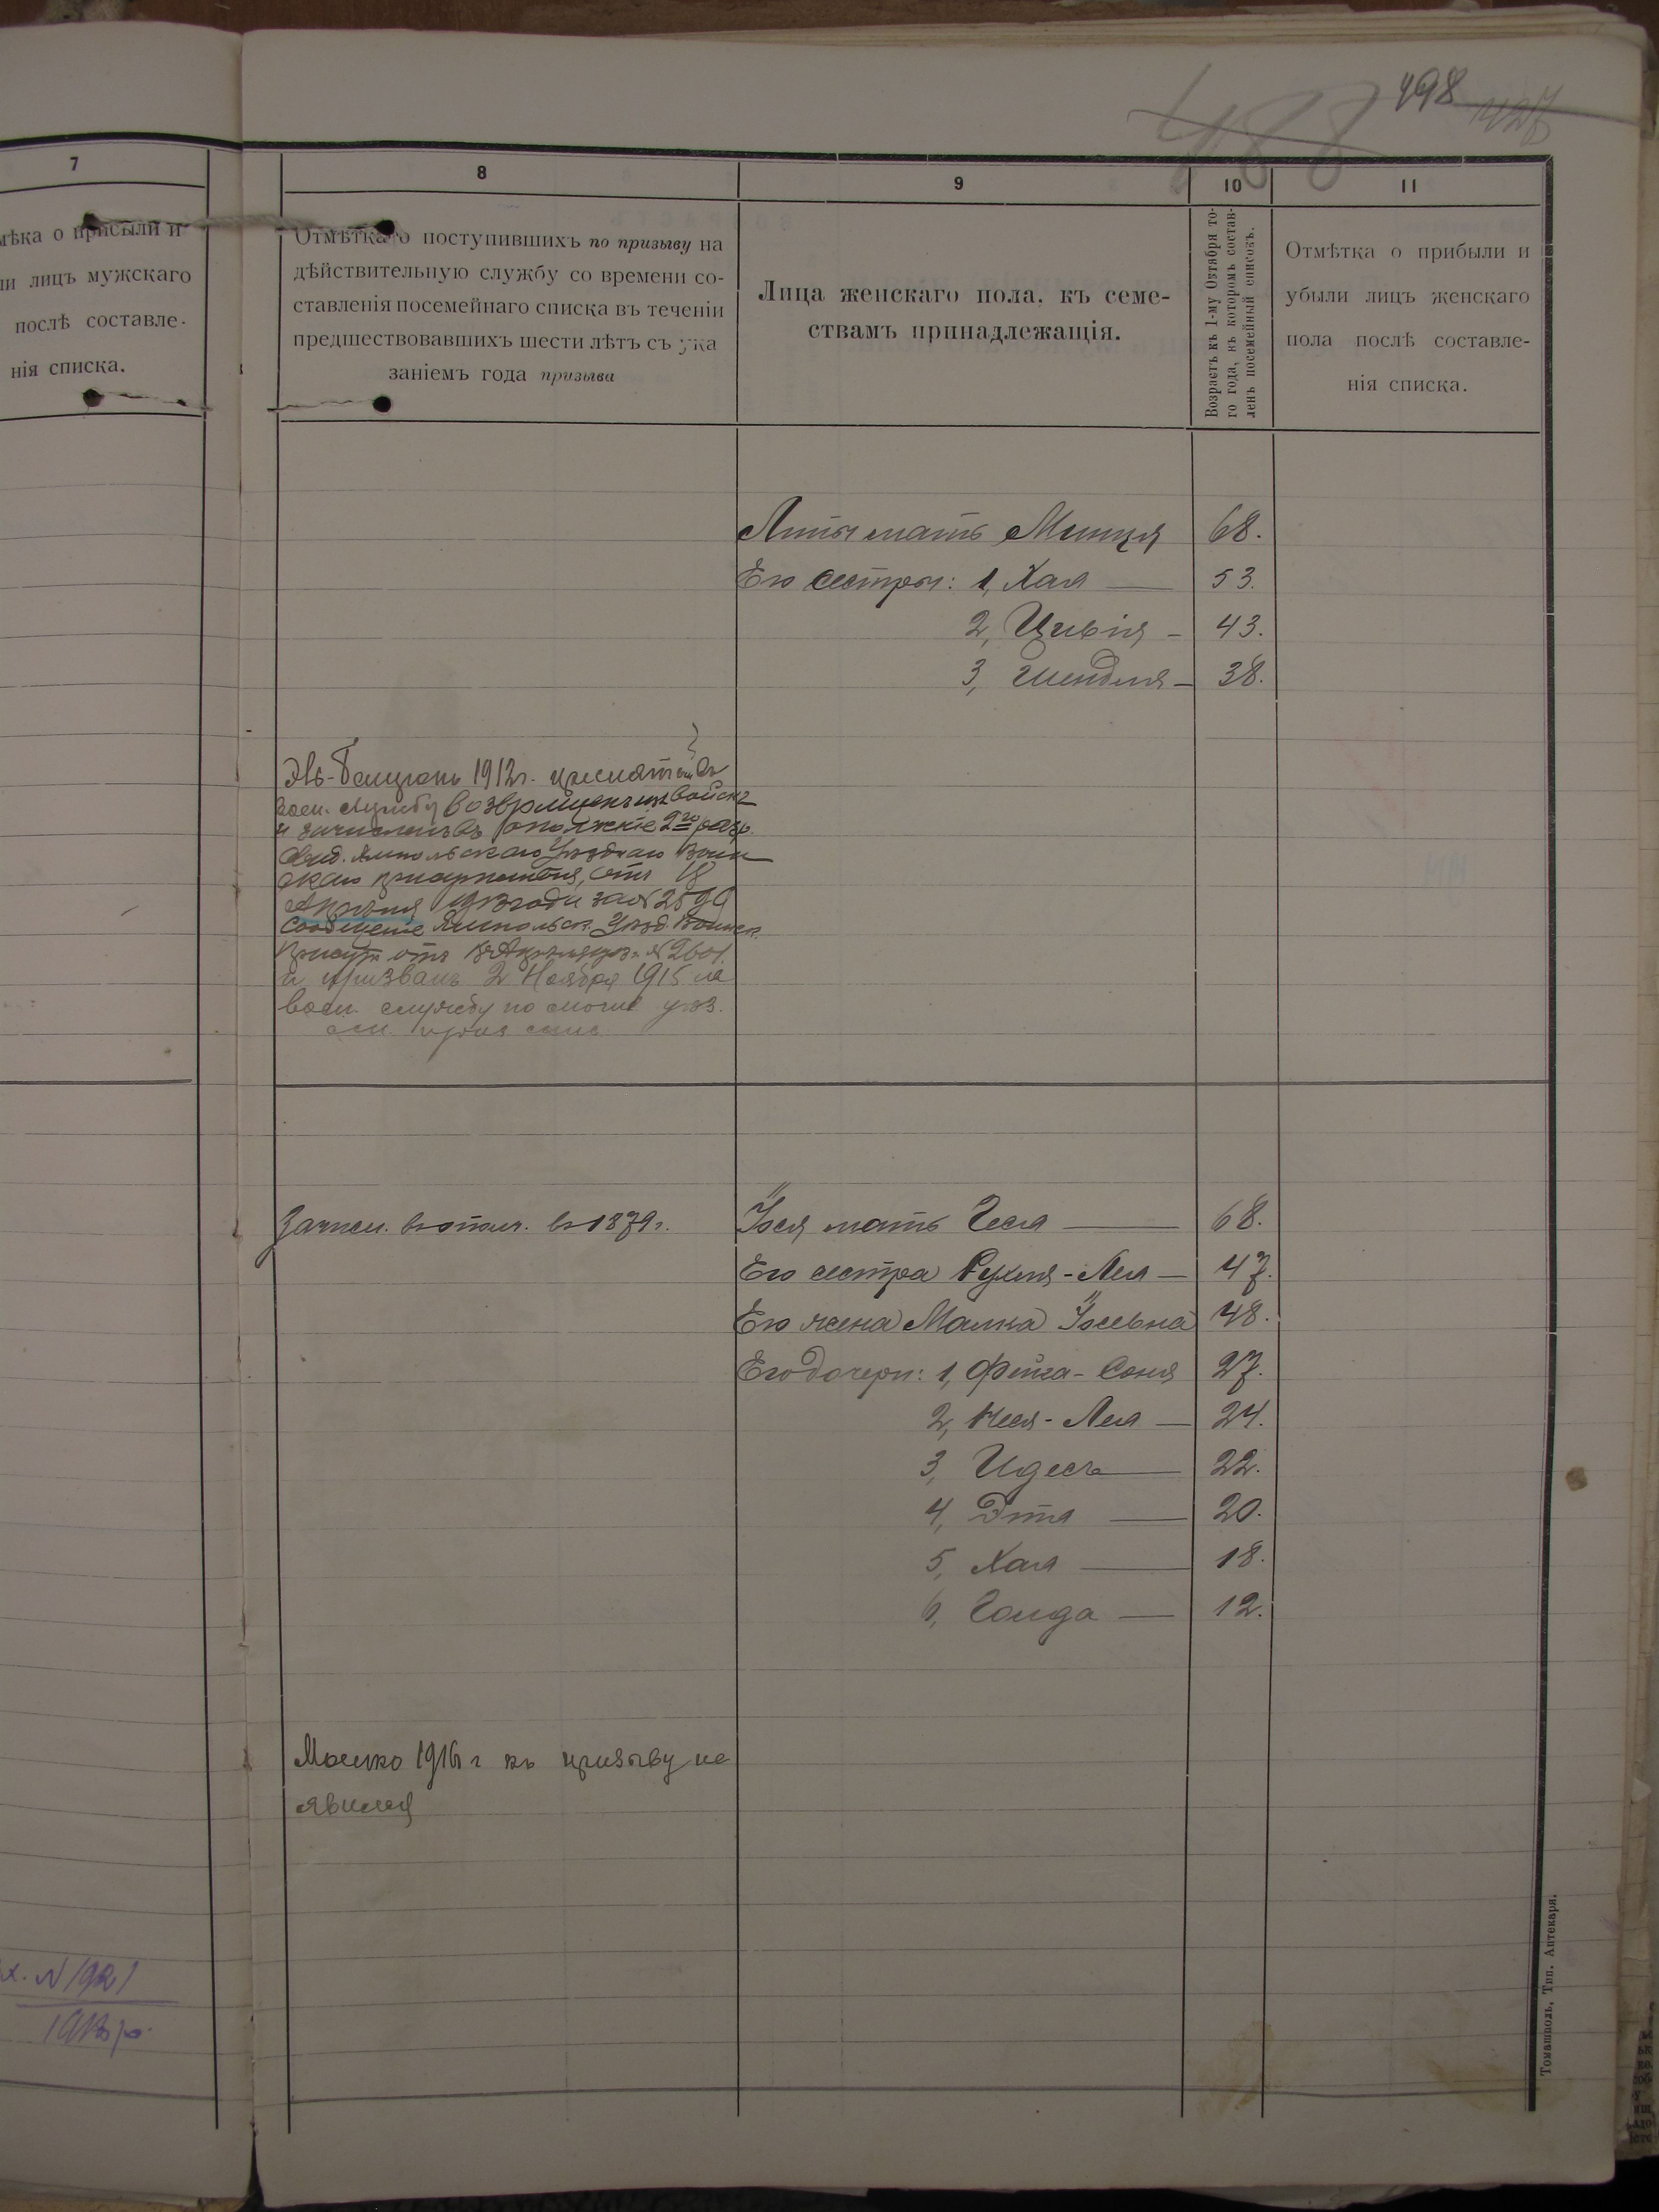 498
488
7
мѣка о прибыли и
ли лицъ мужскаго
послѣ составле-
нія списка.
8
Отмѣтка о поступившихъ по призыву на
дѣйствительную службу со времени со-
ставленія посемейнаго списка въ теченіи
предшествовавшихъ шести лѣтъ съ ука
заніемъ года призыва
9
Лица женскаго пола, къ семе-
ствамъ принадлежащія.
10
Возрастъ къ 1-му Октября то-
го года, въ которомъ состав-
ленъ посемейный списокъ.
11
Отмѣтка о прибыли и
убыли лицъ женскаго
пола послѣ составле-
нія списка.
мать 68.
Его сестры: 1, Хая 53.
2, Цивія 43.
3, Шендля 38.
1912г. принятъ въ
воен. службу возвращенъ изъ войскъ
и зачисленъ въ ополченіе 2го разр.
Ямпольскаго Уѣзднаго Воин
скаго присутствія, отъ 18
Апрѣля 1913 года за №
Сообщеніе Ямпольск. Уѣзд. Воинск.
Присут. отъ № 2601.
и призванъ 2 Ноября 1915 на
воен. службу по
Зачисл. въ ополч. въ 1879г.
мать Геся 68.
Его сестра Рухля-Лея 47.
Его жена Малка 48.
Его дочери: 1, Фейга-Соня 27.
2, Лея 24.
3, Идесъ 22.
4, Этя 20.
5, Хая 18.
6, Голда 12.
Мошко 1916г къ призыву не
явился
№ 1921
Томашполь, Тип. Аптекаря.